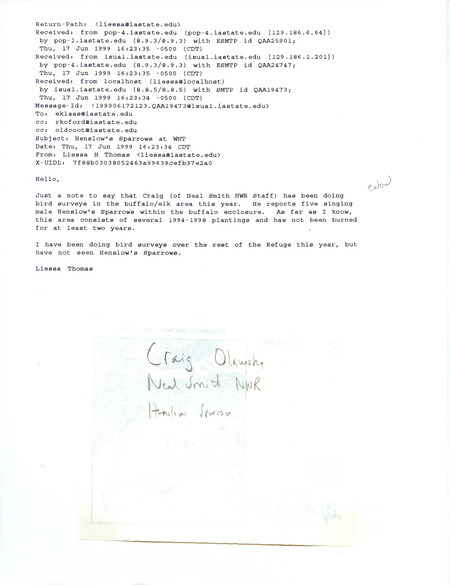 Return-Path: <liessa@iastate.edu>
Received: from pop-4.iastate.edu (pop-4.iastate.edu [129.186.6.64])
by pop-1.iastate.edu (8.9.3/8.9.3) with ESMTP id QAA25901;
Thu, 17 Jun 1999 16:23:35 -0500 (CDT)
Received: from isual.iastate.edu (isual.iastate.edu [129.186.1.201])
by pop-4.iastate.edu (8.9.3/8.9.3) with ESMTP id QAA24747;
Thu, 17 Jun 1999 16:23:35 -0500 (CDT)
Received: from localhost (liessa@localhost)
by isual.iastate.edu (8.8.5/8.8.5) with SMTP id QAA19473;
Thu, 17 Jun 1999 16:23:34 -0500 (CDT)
Message-Id: <199906172123.QAA19473@isual.iastate.edu>
To: eklaas@iastate.edu
cc: rkoford@iastate.edu
cc: oldcoot@iastate.edu
Subject: Henslow's Sparrows at WNT
Date: Thu, 17 Jun 1999 16:23:34 CDT
From: Liessa H Thomas <liessa@iastate.edu>
X-UIDL: 7f88b03038052463a99639cefb37e2a0
Hello,
Just a note to say that Craig (of Neal Smith NWR Staff) has been doing
bird surveys in the buffalo/elk area this year. He reports five singing
male Henslow's Sparrows within the buffalo enclosure. As far as I know,
this area consists of several 1994-1998 plantings and has not been burned
for at least two years.
I have been doing bird surveys over the rest of the Refuge this year, but
have not seen Henslow's Sparrows.
Liessa Thomas
Craig
Neal Smith NWR
Henslow Sparrow